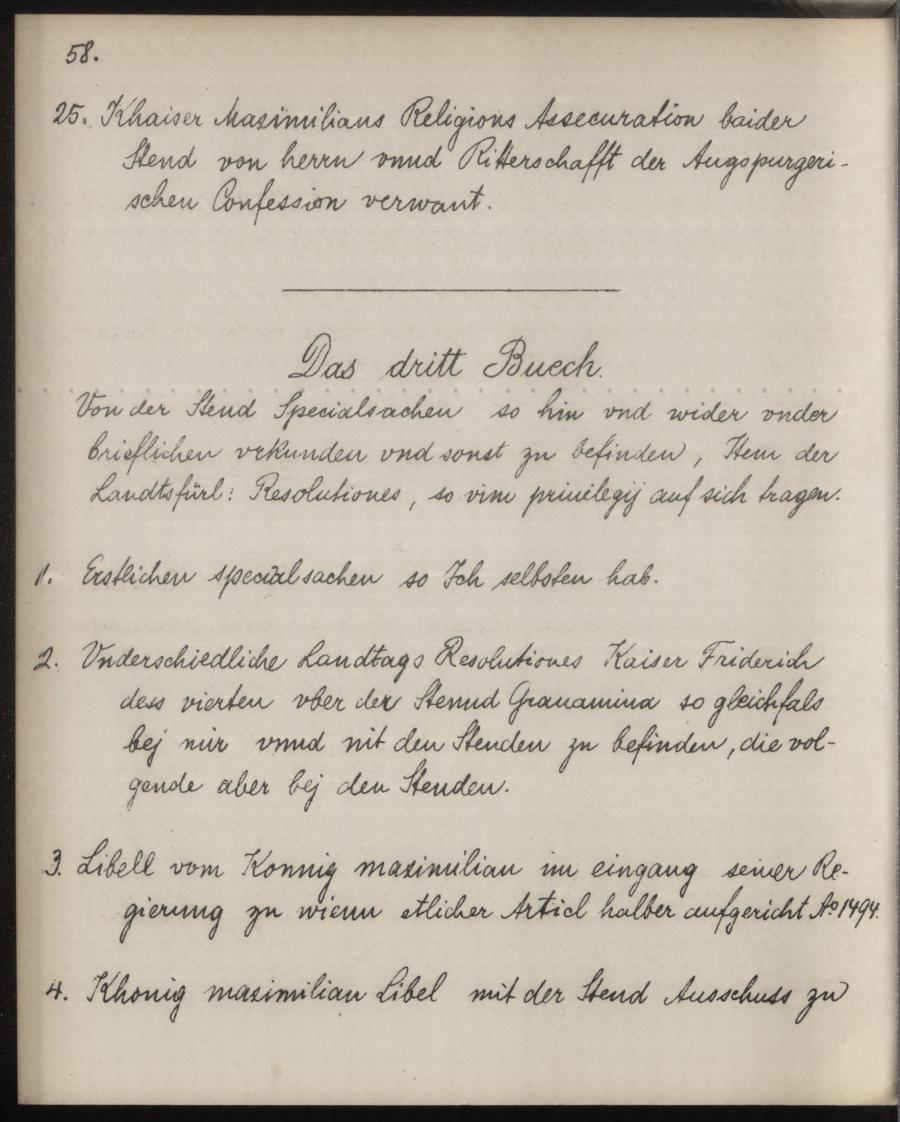 58.
25. Khaiser Maximilians Religions Assecuration baider
Stend von herrn vnnd Ritterschafft der Augspurgeri-
schen Confession verwant.
Das dritt Buech.
Von der Stend Specialsachen so hin vnd wider vnder
brieflichen vrkunden vnd sonst zu befinden, Item der
Landtsfürl: Resolutiones, so vim priuilegij auf sich tragen.
1. Erstlichen specialsachen so Ich selbsten hab.
2. Vnderschiedliche Landtags Resolutiones Kaiser Friderich
dess vierten vber der Stennd Grauamina so gleichfals
bej mir vnnd nit den Stenden zu befinden, die vol-
gende aber bej den Stenden.
3. Libell vom Konnig maximilian im eingang seiner Re-
gierung zu wienn etlicher Articl halber aufgericht Ao 1494.
4. Khonig maximilian Libel mit der Stend Ausschuss zu